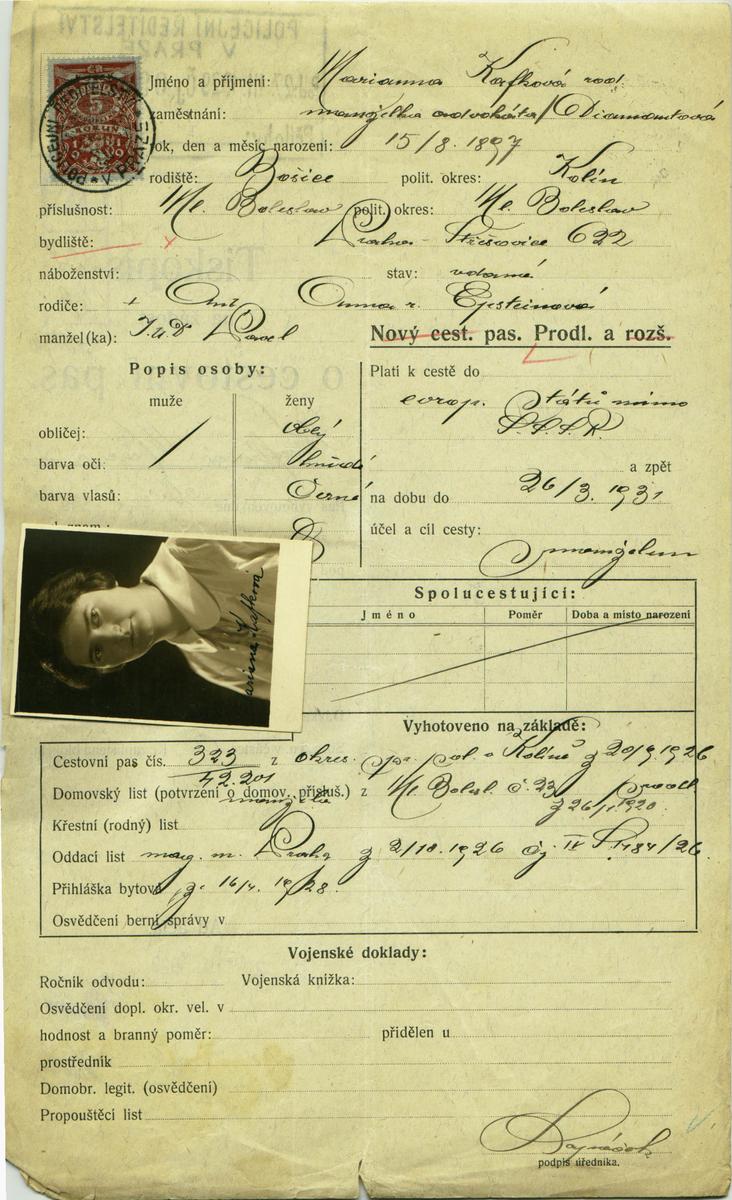 POLICEJNÍ ŘEDITELSTVÍ
V PRAZE
5
KORUN
POLICEJNÍ ŘEDITELSTVÍ V PRAZE
Jméno a příjmení: Marianna Kafková roz.
zaměstnání: manželka advokáta / Diamantová
rok, den a měsíc narození: 15/8. 1897
rodiště: Bošice polit. okres: Kolín
příslušnost: Ml. Boleslav polit. okres: Ml. Boleslav
bydliště: Praha - Střešovice 622
náboženství: stav: vdaná
rodiče: Ant Anna r. Epsteinová
manžel(ka): JuD Pavel
Nový cest. pas. Prodl. a rozš.
Popis osoby:
muže ženy
Platí k cestě do
evrop. států mimo
S.S.S.R.
obličej: oblý
barva očí: hnědé
a zpět
barva vlasů: černé
na dobu do 26/3. 1931
účel a cíl cesty:
s manželem
Mariana Kafková
Spolucestující:
Jméno Poměr Doba a místo narození
Vyhotoveno na základě:
Cestovní pas čís. 323 z okres. spr. pol. v Kolíně z 20/9.1926
42.201
Domovský list (potvrzení o domov. přísluš.) z Ml. Bolesl. č. 23
manžela z 26/1 1920.
Křestní (rodný) list
Oddací list mag. m. Prahy z 2/10.1926 čj. IV 484/26.
Přihláška bytová z 16/4. 1928.
Osvědčení berní správy v
Vojenské doklady:
Ročník odvodu: Vojenská knížka:
Osvědčení dopl. okr. vel. v
hodnost a branný poměr: přidělen u
prostředník
Domobr. legit. (osvědčení)
Propouštěcí list
podpis úředníka.